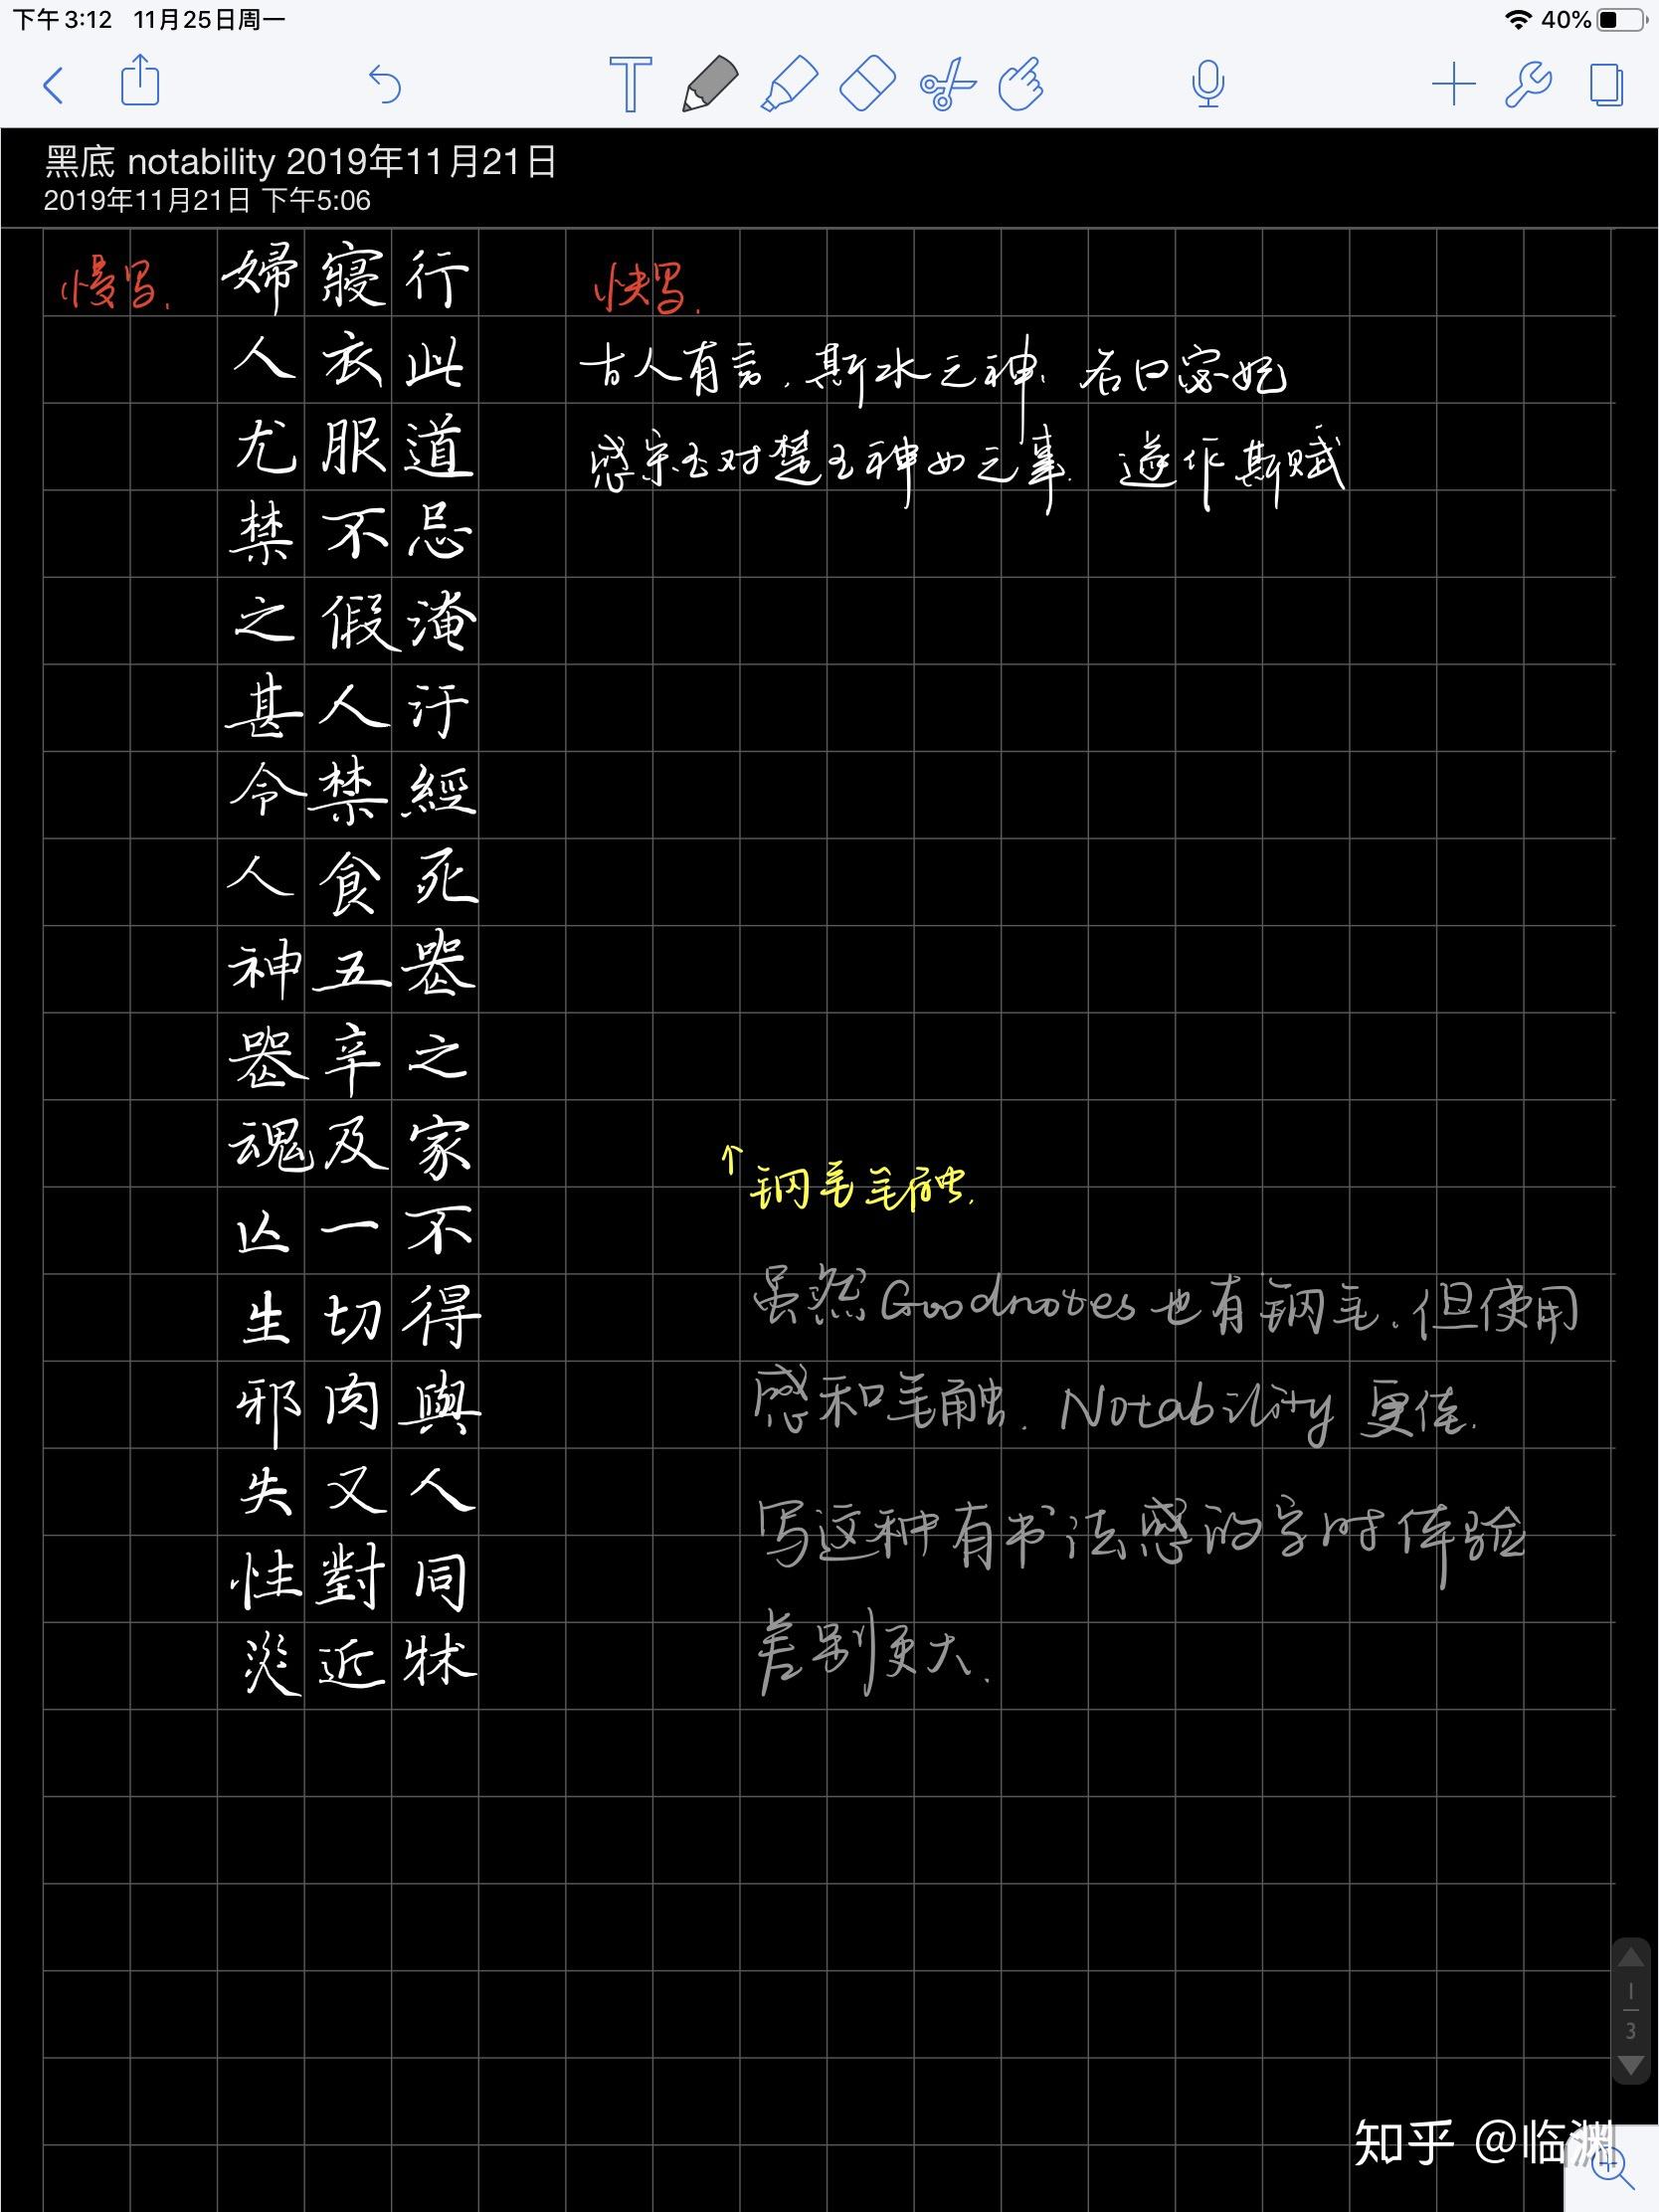 下午3:12 11月25日周一
40%
黑底 notability 2019年11月21日
2019年11月21日 下午5:06
慢写.
行此道忌淹汙經死喪之家不得與人同牀
寢衣服不假人禁食五辛及一切肉又對近
婦人尤禁之甚令人神喪魂亾生邪失性災
快写.
古人有言,斯水之神、名曰宓妃
感宋玉对楚王神女之事. 遂作斯赋
↑钢笔笔触.
虽然Goodnotes也有钢笔.但使用
感和笔触. Notability 更佳.
写这种有书法感的字时体验
差别更大.
1
3
知乎 @临渊